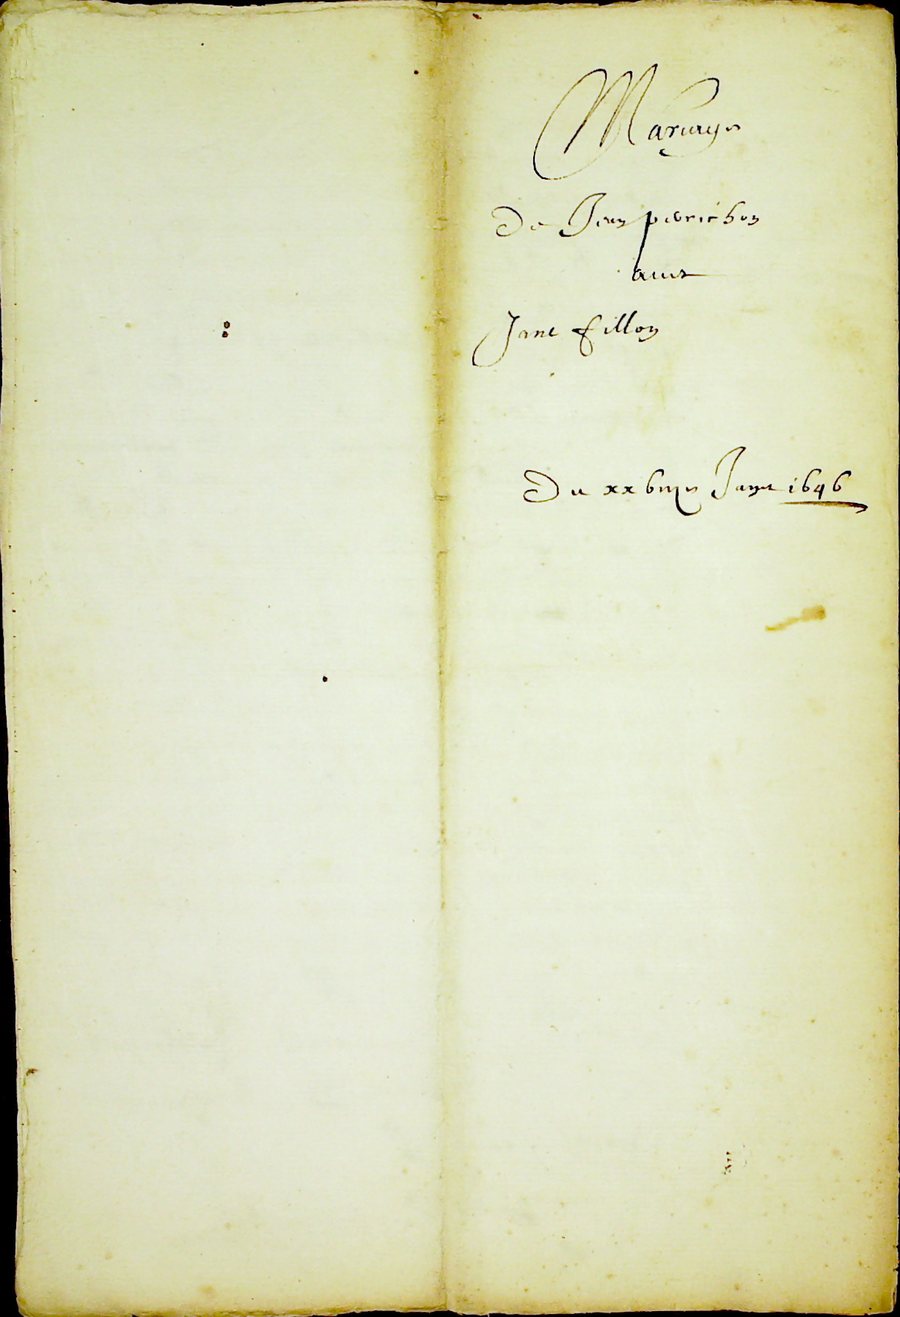 Mariage
De Jean perichon
avec
Jane fillon
Du xxbme Janer 1646